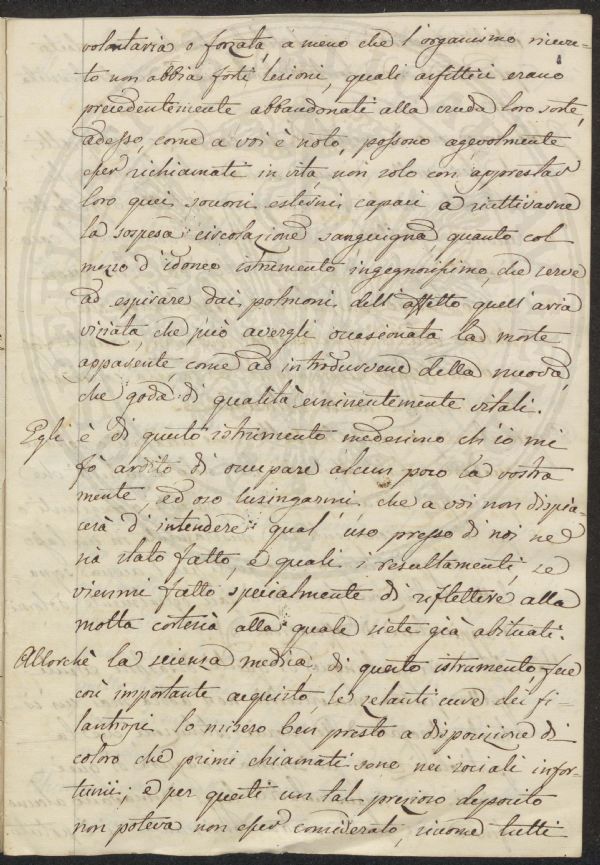 volontaria o forzata, a meno che l'organismo ricevu-
to non abbia forti lesioni, quali asfittici erano
precedentemente abbandonati alla cruda loro sorte,
adesso, come a voi è noto, possono agevolmente
esser richiamati in vita, non solo con apprestar
loro quei soccorsi esterni capaci a riattivarne
la sospesa circolazione sanguigna quanto col
mezzo d'idoneo istrumento ingegnosissimo, che serve
ad espirare dai polmoni dell'affetto quell'aria
viziata, che può avergli occasionata la morte
apparente, come ad introdurvene della nuova,
che goda di qualità eminentemente vitali.
Egli è di questo istrumento medesimo ch'io mi
fò ardito di occupare alcun poco la vostra
mente, ed oso lusingarmi che a voi non dispia-
cerà d'intendere qual uso presso di noi ne
sia stato fatto, e quali i resultamenti, se
viemmi fatto specialmente di riflettere alla
molta cortesia alla quale siete già abituati.
Allorchè la scienza medica di questo istrumento fece
così importante acquisto, le zelanti cure dei fi-
lantropi lo misero ben presto a disposizione di
coloro che primi chiamati sono nei sociali infor-
tunii; e per questi un tal prezioso deposito
non poteva non esser considerato, siccome tutti